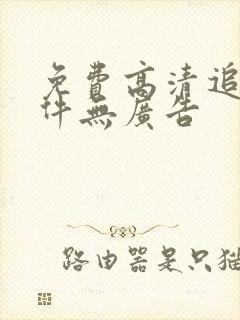 免費高清追
件無廣告
路由器是只猫